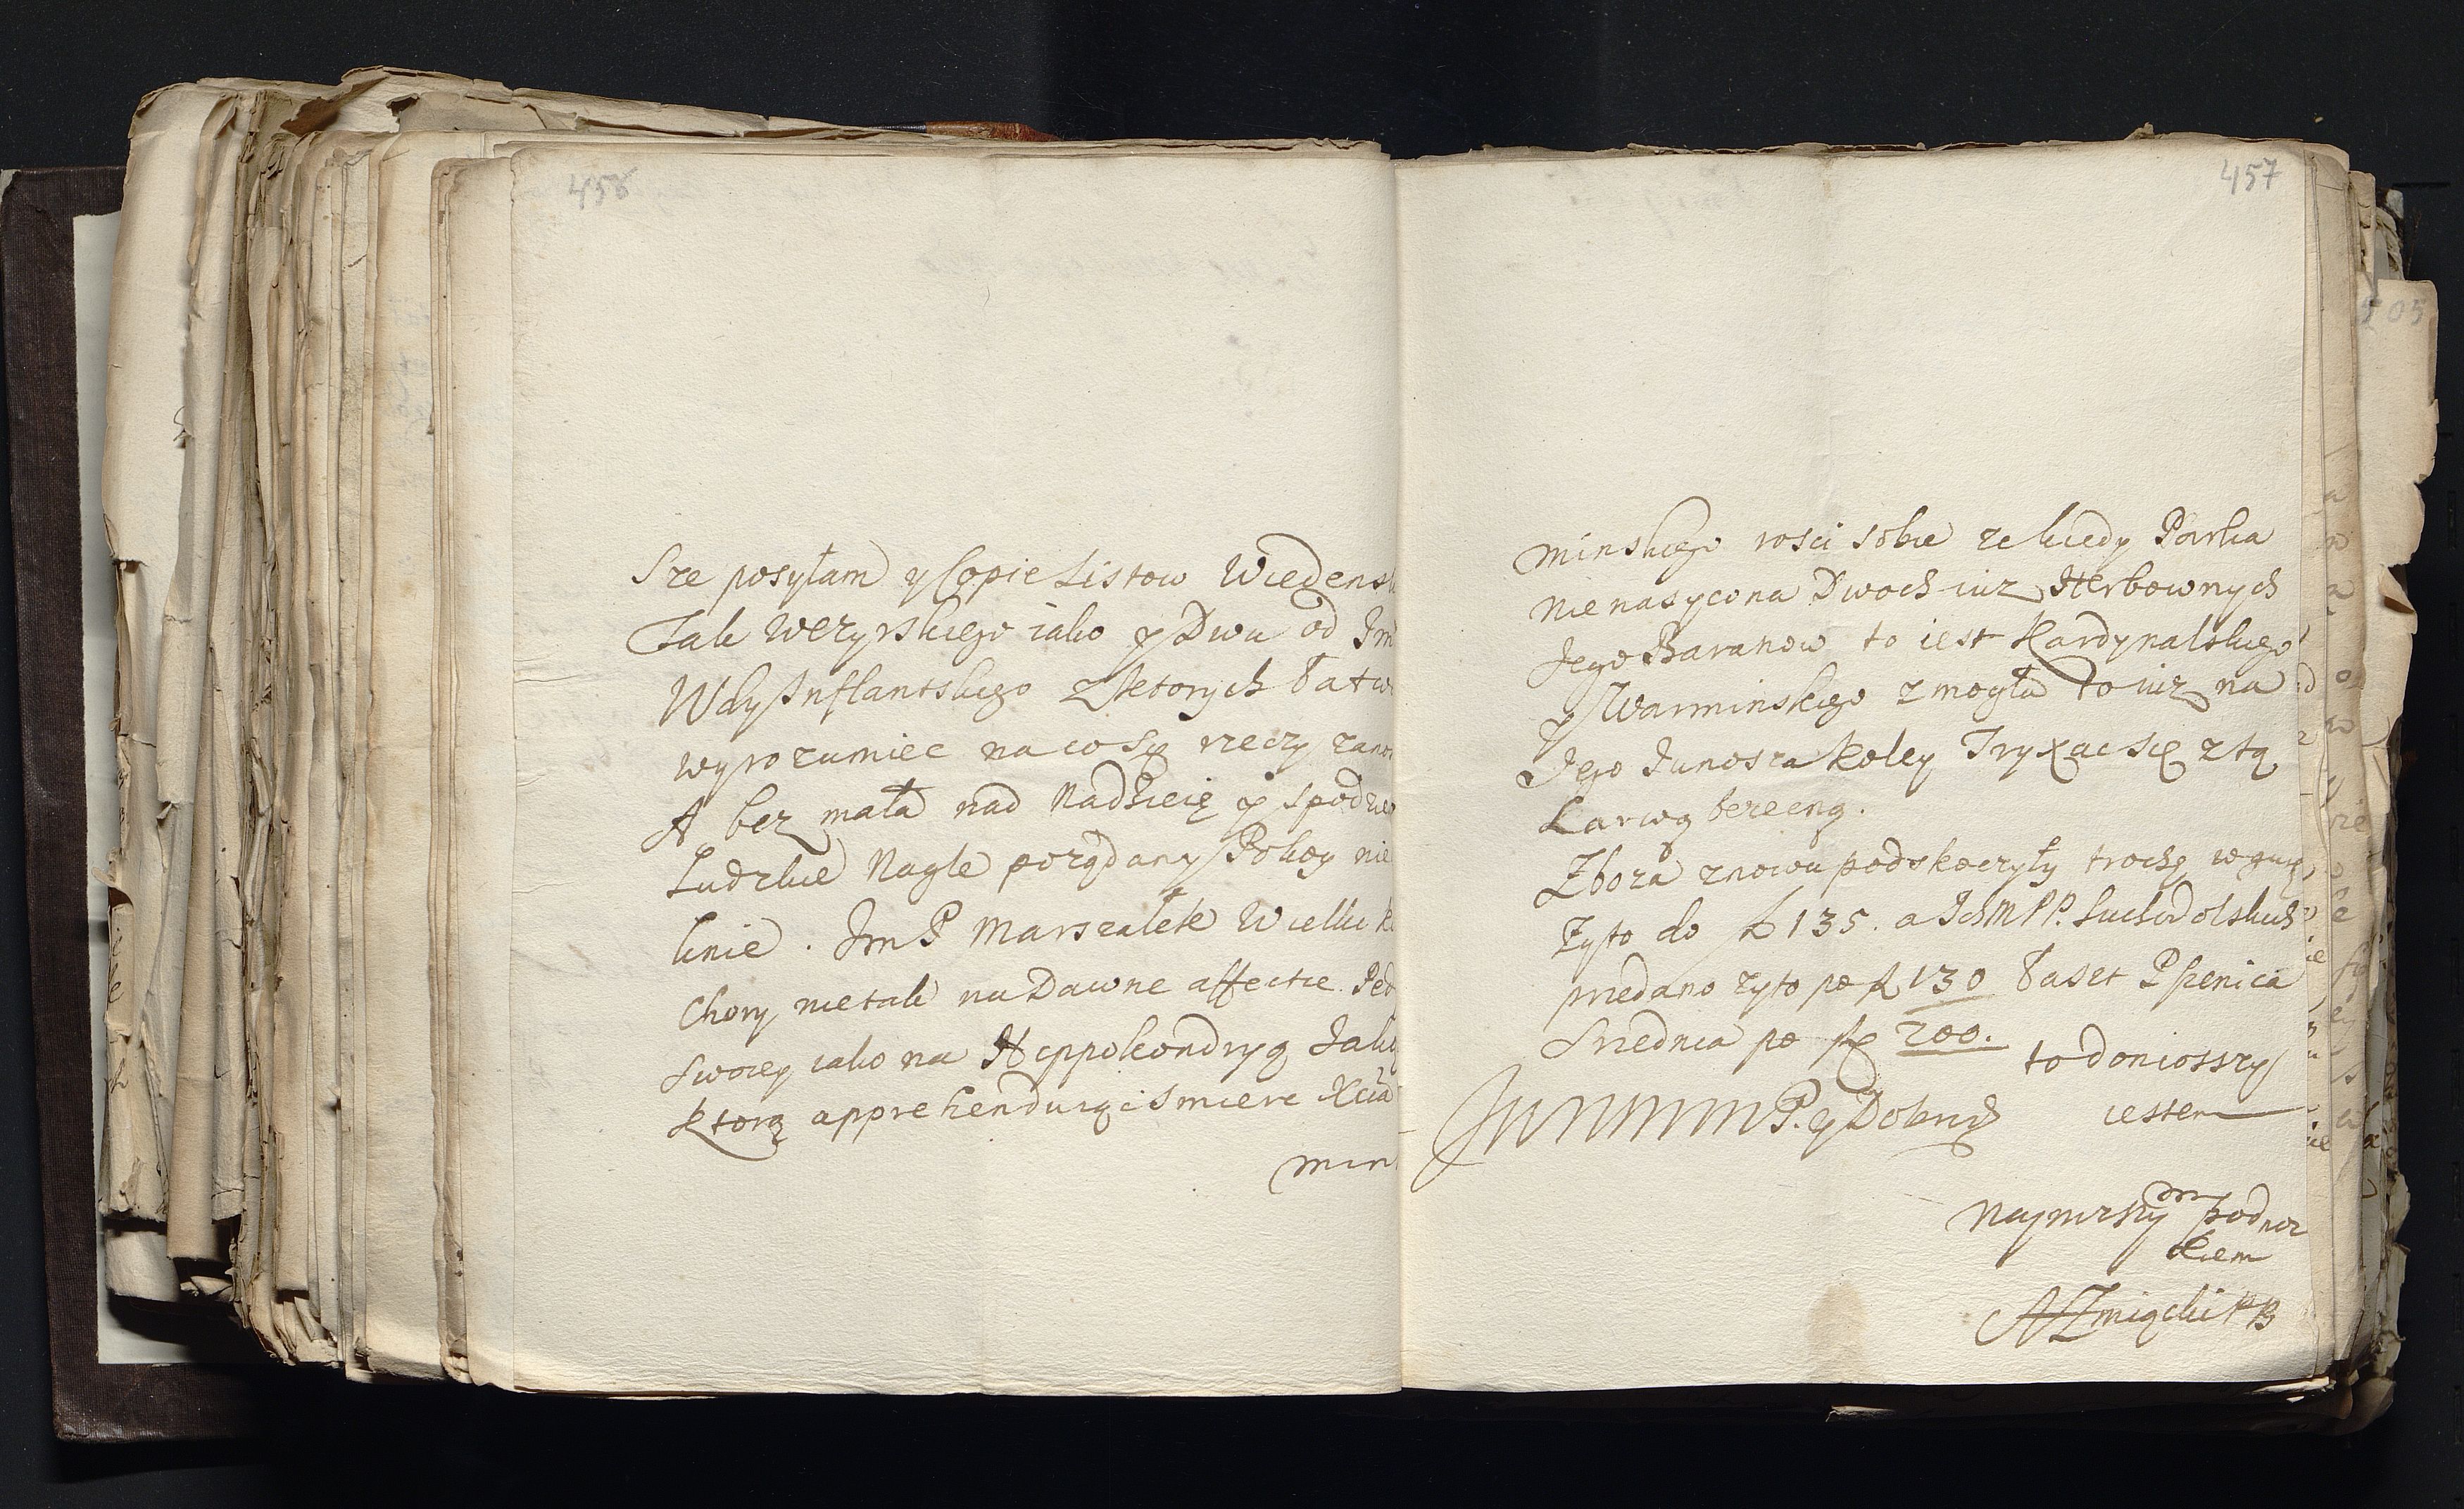 456
Sze posyłam y Copie Listow Wiedensk
Tak Wezyrskiego iako y Dwu od Im
Wdy Inflantskiego z ktorych Łatw
wyrozumiec na co Się rzeczy zano
A bez mała nad Nadzieię y spodzie
Ludzkie Nagle porządany Pokoy nie
knie. Im P Marszałek Wielki k
Chory nie tak na Dawne affectie Ped
Swoiey iako na Hyppokondryą Jaki
Ktorą apprehenduiąc Smierc Xcia
min
457
minskiego rosci sobie ze kiedy Parka
nienasycona Dwoch iuz Herbownych
Jego Baranow to iest Kardynalskiego
y Warminskiego zmogła to iuz na
Jego Junosza koley Tryxac Się z tą
Larwą bezecną.
Zboza znowu podskoczyły trochę w gurę
Zyto do f 135. a Ich M PP. Suchodolskich
przedano zyto po f 130 Łaszt Pszenica
Srzednia po f 200.
to doniosszy
P. y Dobrdz iestem
Nayniszszym podnoz
kiem
AZmiącki PB
505